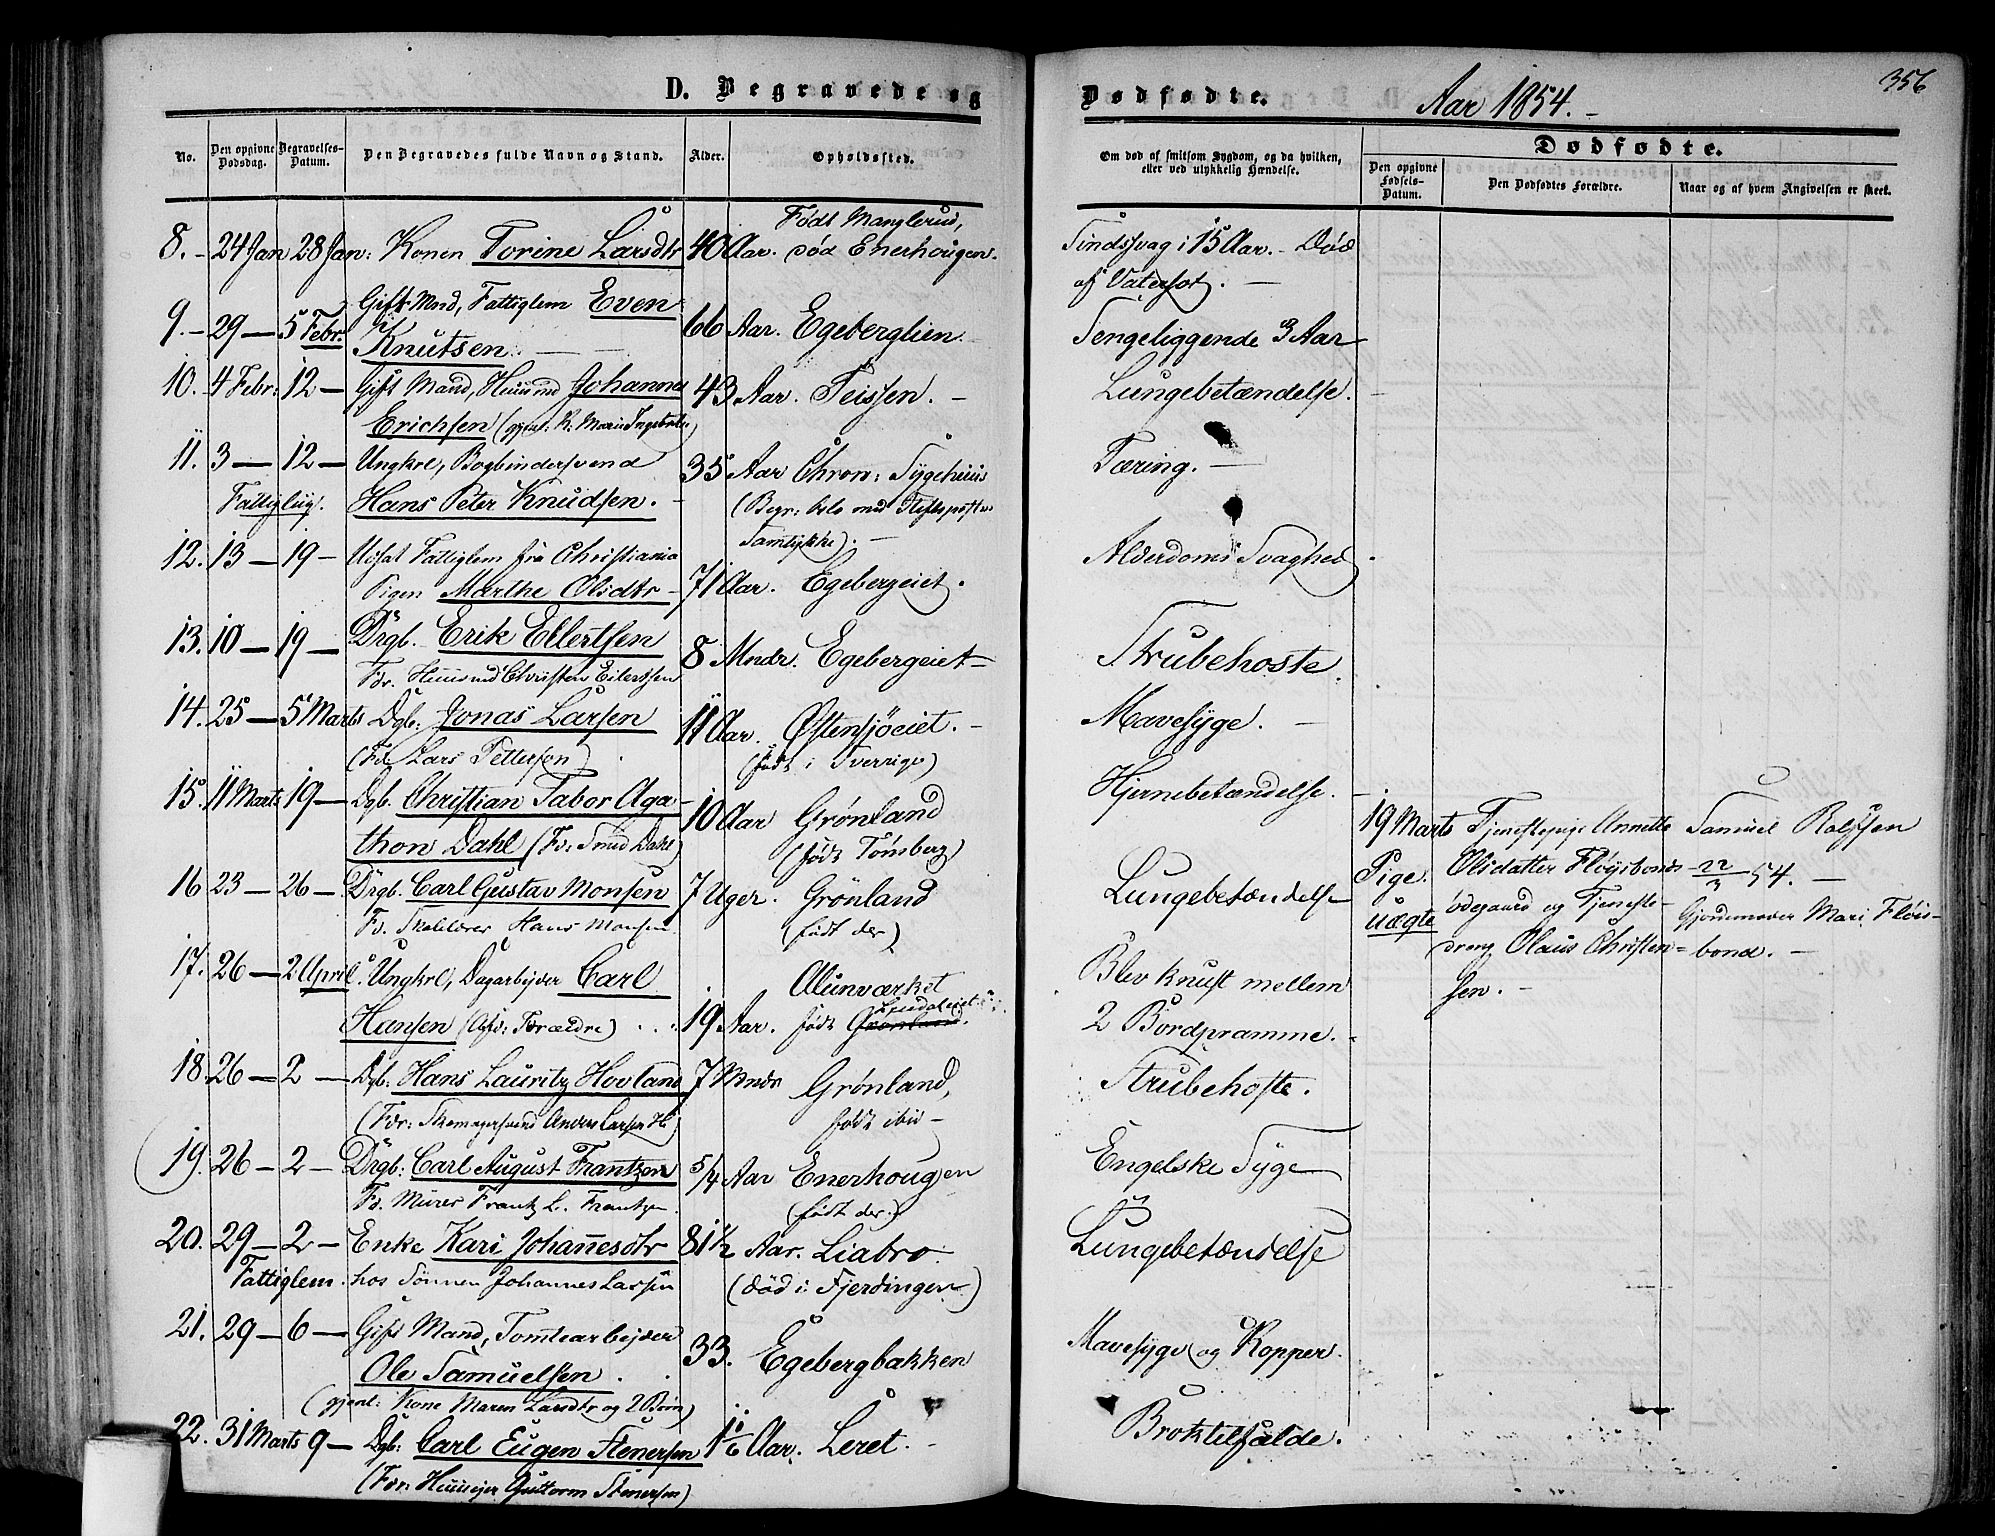 D. Begravede og
Dødfødte.
Aar 1854.
356
Dødfødte.
No.
Den opgivne Dødsdag.
Begravelses-Datum.
Den Begravedes fulde Navn og Stand.
Alder.
Opholdssted.
Om død af smitsom Sygdom, og da hvilken, eller ved ulykkelig Hændelse.
Den opgivne Fødsels-Datum.
Den Dødfødtes Forældre.
Naar og af hvem Angivelsen er skeet.
Født Manglerud,
8. - 24 Jan 28 Jan: Konen Torine Larsdtr 40 Aar. død Enerhougen. Sindssvag i 15 Aar. - Død
af Vatersot. -
9. - 29 - 5 Febr. Gift Mnd, Fattiglem Even
Knutsen. - 66 Aar. Egeberglien. Sengeliggende 3 Aar
10. 4 Febr: 12 - Gift Mand, Huusmd Johannes 43 Aar. Teissen. - Lungebetændelse. -
Erichsen (gjenl. K. Mari Ingebrdtr)
11. 3 - 12 - Ungkrl, Bogbindersvend 35 Aar Chron: Sygehuus Tæring. -
Fattiglig. Hans Peter Knudsen. - (Begr: Oslo med Stiftsprostens
Samtykke). -
12. 13 - 19 - Udsat Fattiglem fra Christiania
Pigen Marthe Olsdtr - 71 Aar. Egebergeiet. Alderdoms Svaghed.
13. 10 - 19 - Drgb. Erik Ellertsen 8 Mndr. Egebergeiet - Strubehoste.
Fdr. Huusmd Christen Eilertsen
14. 25 - 5 Marts Dgb: Jonas Larsen 11 Aar. Østensjøeiet. - Mavesyge. -
(Fdr Lars Pettersen) (født i Sverrige)
15. 11 Marts 19 - Dgb. Christian Tabor Aga- 10 Aar Grønland Hjernebetændelse. -
thon Dahl (Fdr: Smed Dahl) (født Tønsberg)
19 Marts Tjenestepige Annette Samuel Rolfsen
Pige. Olsdatter Fløisbonds 22/3 54. -
uægte ødegaard og Tjeneste- Gjordemoder Mari Fløis-
dreng Olaus Christen- bond. -
sen. -
16 23 - 26 - Drgb. Carl Gustav Monsen 7 Uger. Grönland Lungebetændelse
Fd. Hans Monsen. (født der)
17. 26 - 2 April. Ungkrl, Dagarbejder Carl Alunværket Blev knust mellem
Hansen (Afd: Forældre) 19 Aar. født Grønland. Ljudaleiet 2 Bordpramme. -
18. 26 - 2 - Dgb: Hans Lauritz Hovland 7 Mndr Grønland, Strubehoste.
(Fdr: Skomagersvend Anders Larsen H.) født ibid -
19. 26 - 2 - Drgb: Carl August Frantzen 5/4 Aar Enerhougen Engelske Syge
Fd. Murer Frantz L. Frantzen. (født der.)
20. 29 - 2 - Enke Kari Johannesdtr 81 1/2 Aar. Liabro Lungebetændelse
Fattiglem. hos Sönnen Johannes Larsen (død i Fjerdingen)
21. 29 - 6 - Gift Mand, Tomtearbejder 33. Egebergbakken Mavesyge og Kopper.
Ole Samuelsen.
(gjenl: Kone Maren Larsdtr og 2 Börn)
22. 31 Marts 9 - Dgb: Carl Eugen Stenersen 1 1/6 Aar. Leret. - Broktilfælde.
(Fdr: Huuseier Guttorm Stenersen)